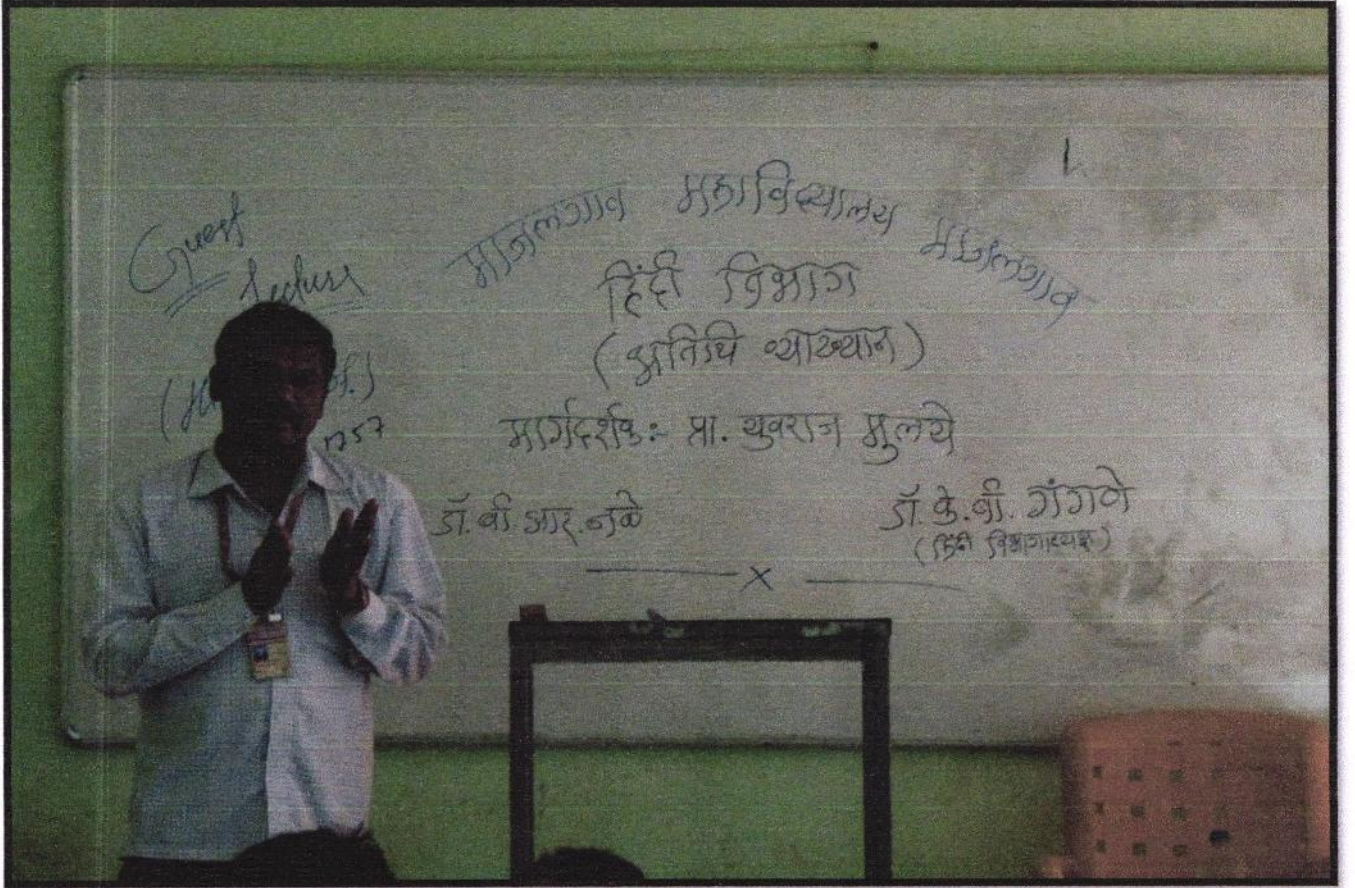 Guest
Lecture
माजलगाव महाविद्यालय माजलगाव
हिंदी विभाग
(अतिथि व्याख्यान)
मार्गदर्शक:- प्रा. युवराज मुलये
डॉ. बी. आर. नळे
डॉ. के. बी. गंगणे
(हिंदी विभागाध्यक्ष)